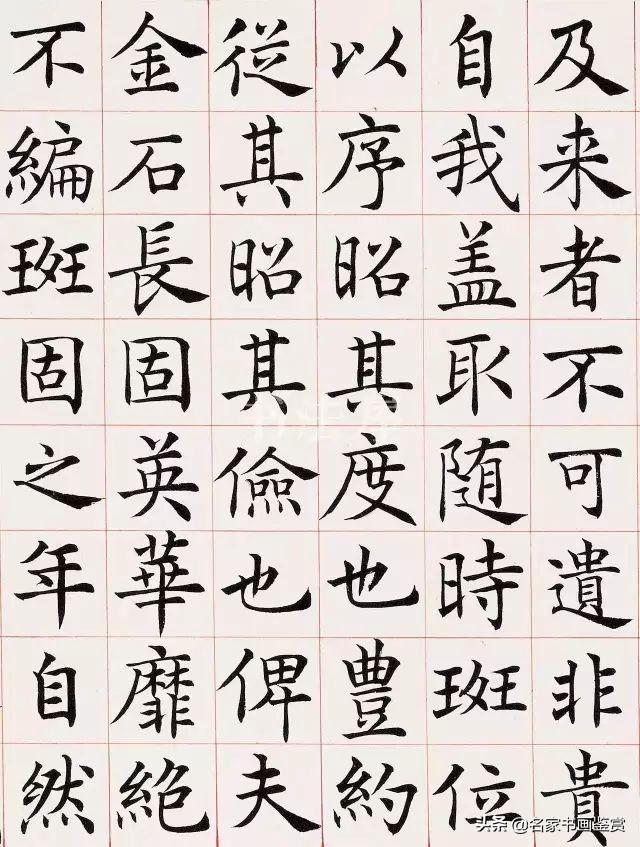 及来者不可遺非貴
自我盖取随時班位
以序昭其度也豊約
從其昭其儉也俾夫
金石長固英華靡絶
不編班固之年自然
书法屋
头条@名家书画鉴赏